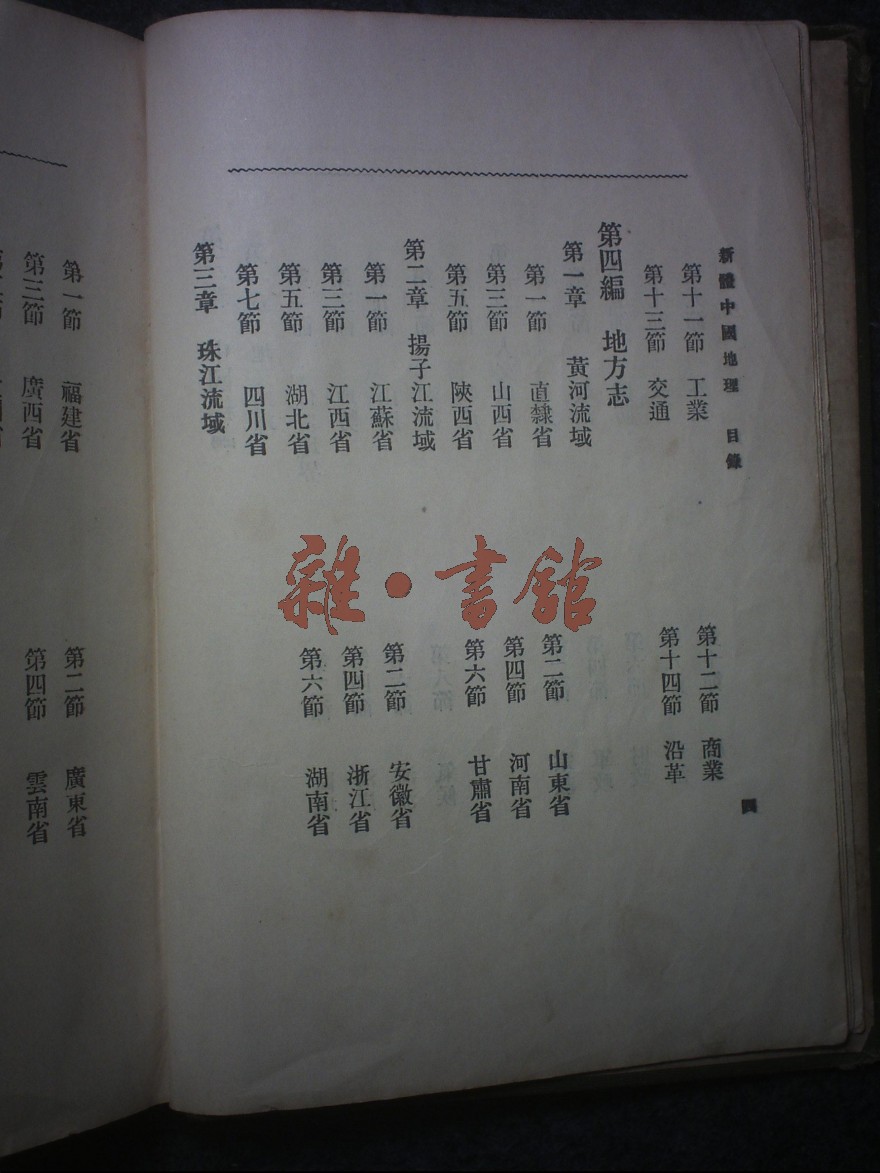 新體中國地理 目錄 四
第十一節 工業 第十二節 商業
第十三節 交通 第十四節 沿革
第四編 地方志
第一章 黃河流域
第一節 直隸省 第二節 山東省
第三節 山西省 第四節 河南省
第五節 陝西省 第六節 甘肅省
第二章 揚子江流域
第一節 江蘇省 第二節 安徽省
第三節 江西省 第四節 浙江省
第五節 湖北省 第六節 湖南省
第七節 四川省
第三章 珠江流域
第一節 福建省 第二節 廣東省
第三節 廣西省 第四節 雲南省
雜·書館